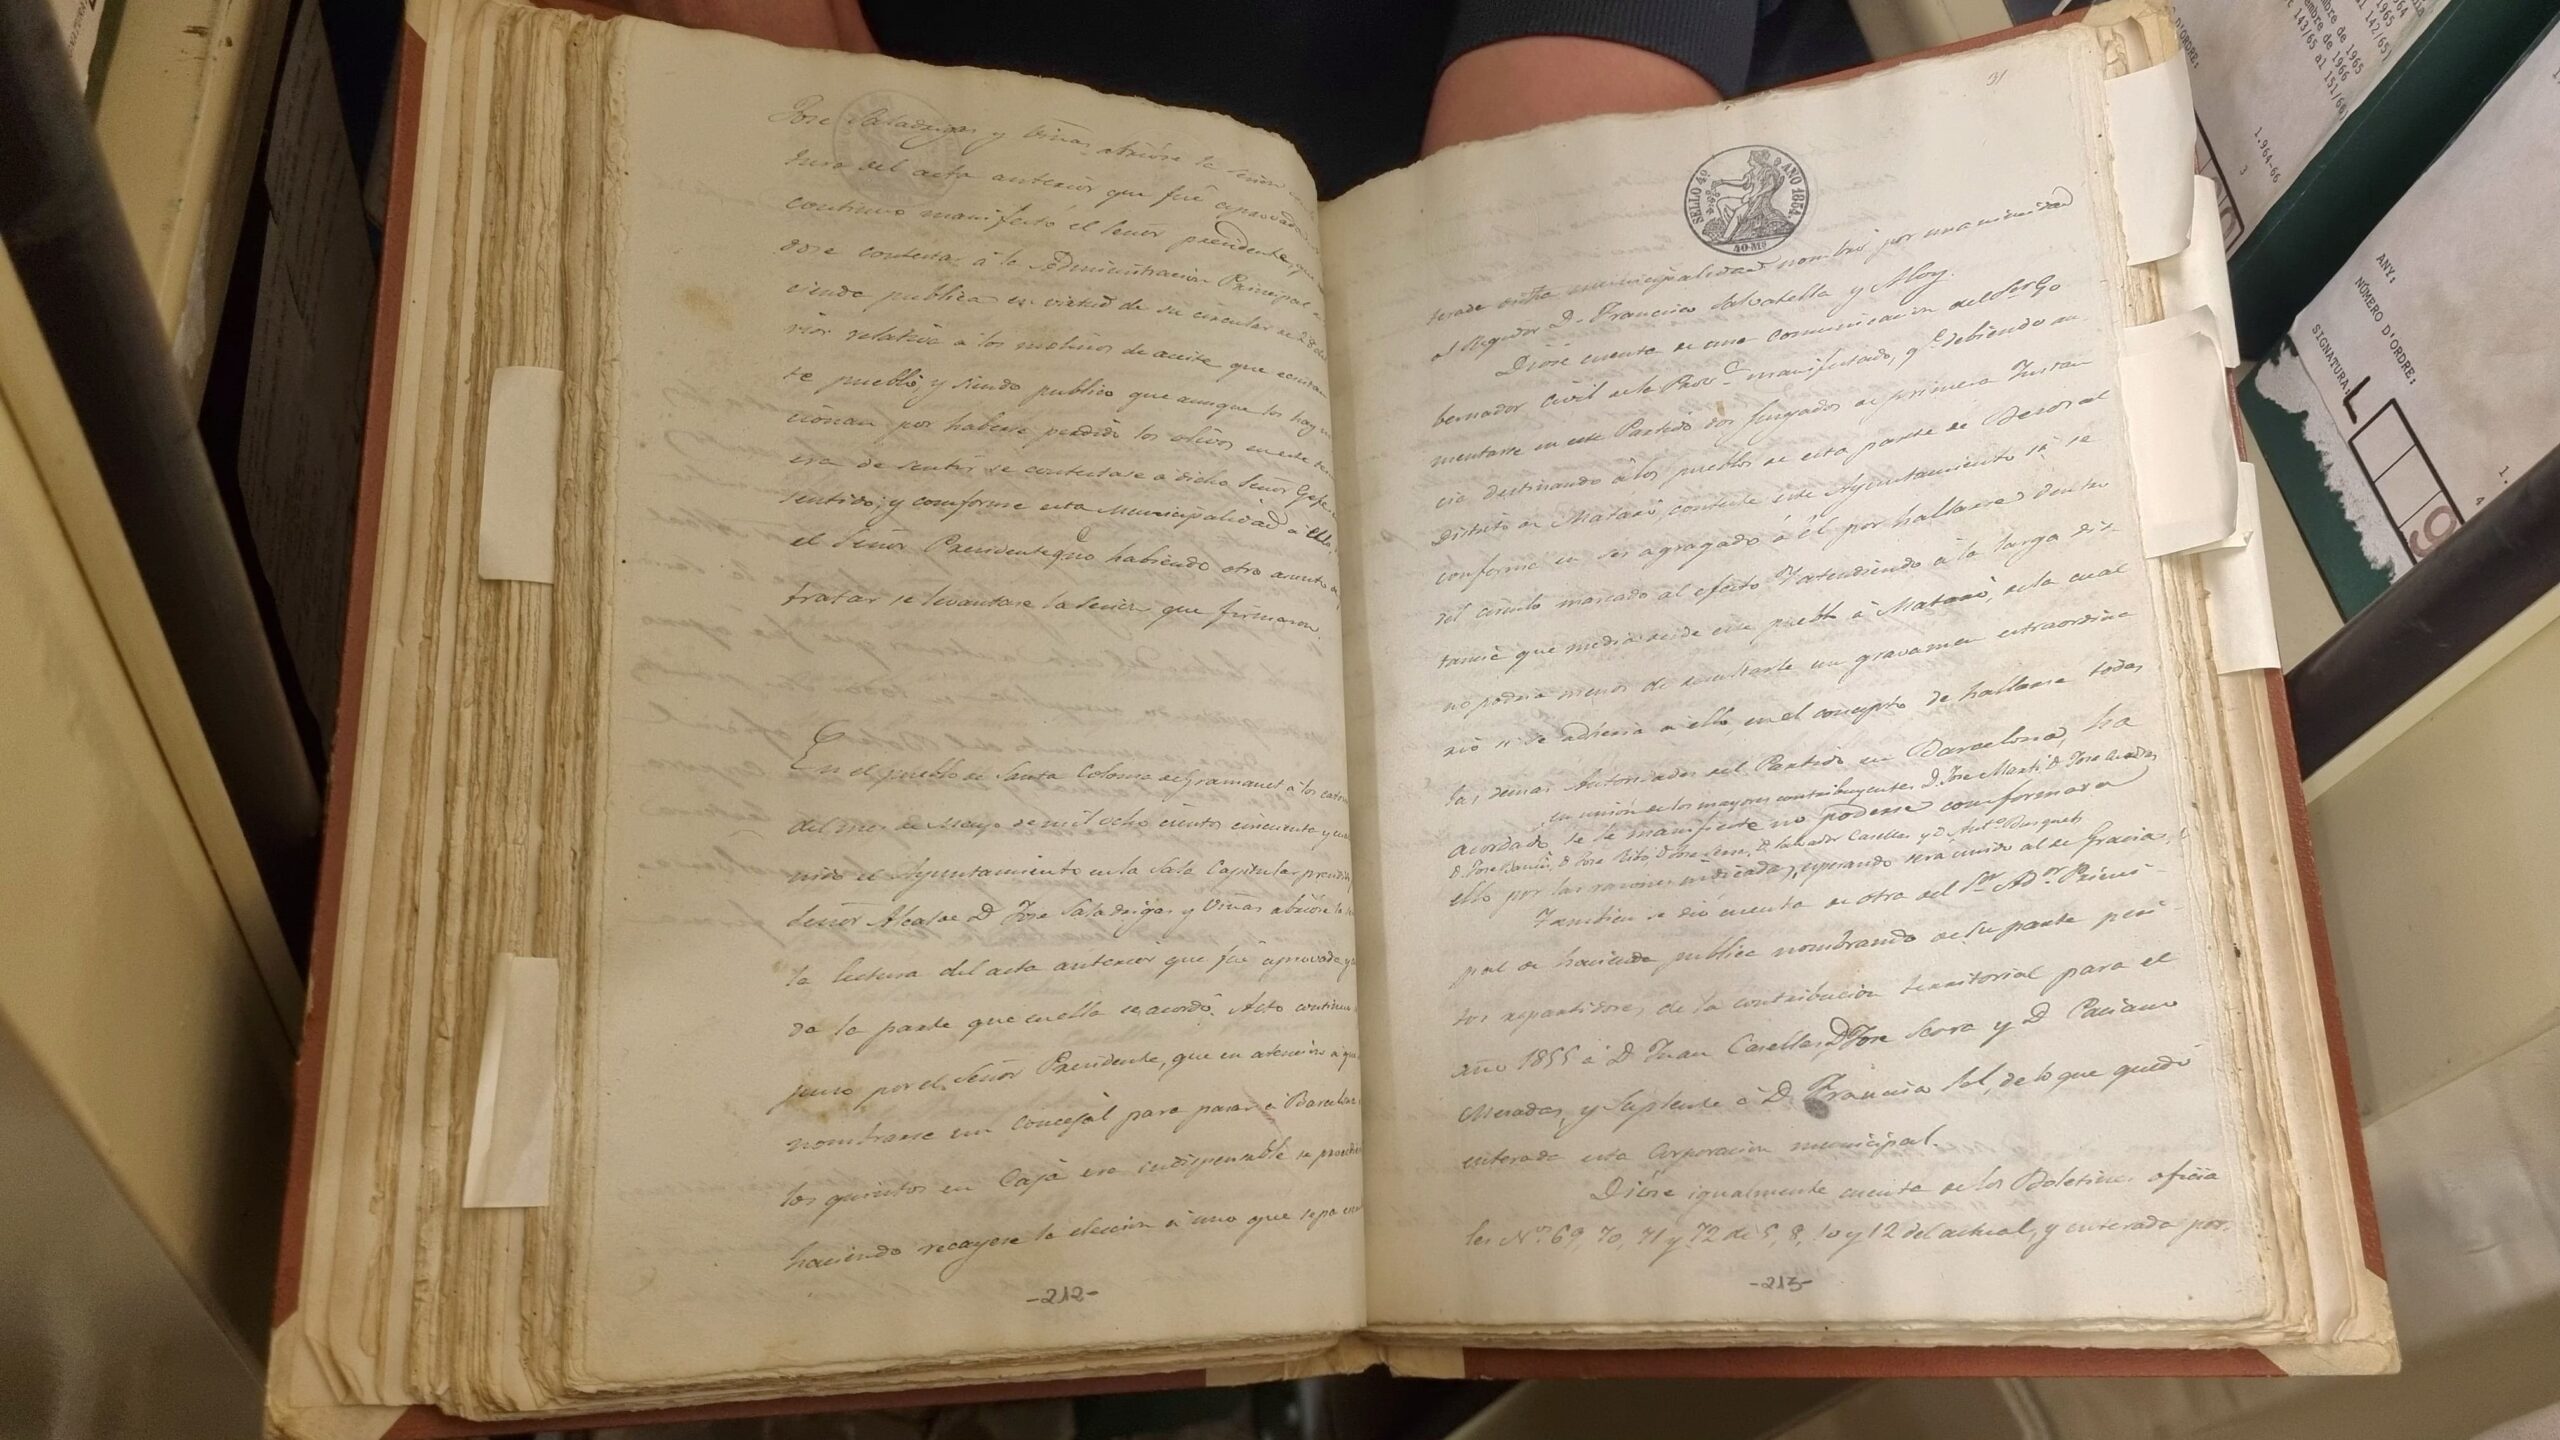 Jose Saladrigas y Viñas abrióse la sesion
tura del acta anterior que fué aprovada
continuo manifestó el Señor presidente, que
dose contestar á la Administracion Principal
cienda publica en virtud de su circular de 28
rior relativa á los molinos de aceite que ecsistan
te pueblo, y siendo publico que aunque los hay
cionan por haberse perdido los olivos en este
era de sentir se contestase á dicho Señor Gefe
sentido; y comforme esta Municipalidad á ello,
el Señor Presidente q.e no habiendo otro asunto
tratar se levantase la sesion que firmaron.
En el pueblo de Santa Coloma de Gramanet á los
del mes de Mayo de mil ocho cientos cincuenta y
nido el Ayuntamiento en la Sala Capitular
Señor Alcalde D Jose Saladrigas y Viñas abrióse la
la lectura del acta anterior que fué aprovada y
da la parte que en ella se acordó. Acto continuo
puso por el Señor Presidente, que en atencion á que
nombrarse un concejal para pasar á Barcelona
los quintos en Caja era indispensable se
haciendo recayese la eleccion á uno que sepa
-212-
31
SELLO 4º AÑO 1854.
40 Ms
terada esta municipalidad nombró por unanimidad
al Regidor D. Francisco Salvatella y Aloy.
Dióse cuenta de una comunicacion del Sr Go
bernador Civil de la Prov.a manifestando, q.e debiendo au
mentarse en este Partido dos Juzgados de primera Instan
cia destinando á los pueblos de esta parte de Besos al
Distrito de Mataró, conteste este Ayuntamiento si se
conforma en ser agragado á él por hallarse dentro
del circulo marcado al efecto Y atendiendo á la larga dis-
tancia que media desde este pueblo á Mataró, de la cual
no podria menos de resultarle un gravamen extraordina
rio si se adheria á ello, en el concepto de hallarse todas
las demas Autoridades del Partido en Barcelona, ha
en union de los mayores contribuyentes D. Jose Marti D Jose
acordado se le manifieste no poderse comformar á
D. Jose D. Jose Ribó, D. Jose D. Salvador Casellas y D Ant.o Busquets
ello por las razones indicadas, esperando será unido al de Gracia
Tambien se dió cuenta de otra del Sor Ador Princi-
pal de hacienda publica nombrando de su parte peri-
tos repartidores de la contribucion territorial para el
año 1855 á D Juan Casellas, D Jose Serra y D Paciano
Meradas, y Suplente á D Francisco Sol, de lo que quedó
enterada esta Corporacion municipal.
Dióse igualmente cuenta de los Boletines oficia
les Nos 69, 70, 71 y 72 de 5, 8, 10 y 12 del actual, y enterada por
-213-
ANY:
NÚMERO D'ORDRE:
SIGNATURA:
L
1.964-66
3